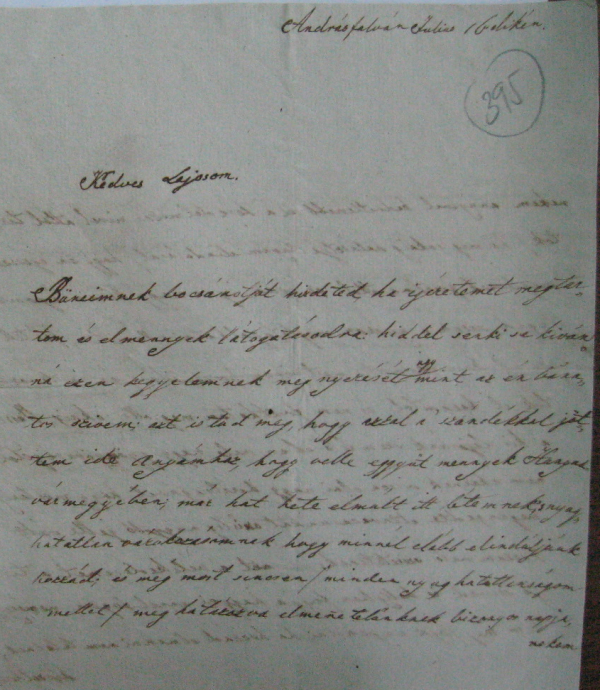 Andrásfalván Julius 16dikán.
395
Kedves Lajosom.
Büneimnek bocsánatját hirdeted ha igéretemet megtar-
tom és elmennyek látogatásodra: hiddel senki se kiván-
ná ezen kegyelemnek meg nyerését ugy mint az én bána-
tos szivem; azt is tud meg, hogy azzal a szándékkal jöt-
tem ide Anyámhoz, hogy velle eggyüt mennyek Hunyad
vármegyében; már hat hete elmult itt létemnek, s nyug-
hatatlan várakozásomnak hogy minnel elébb elinduljunk
hozzád; és még most sincsen / minden nyughatatlanságom
mellet / meg határozva elmenetelünknek bizonyos napja,
nekem